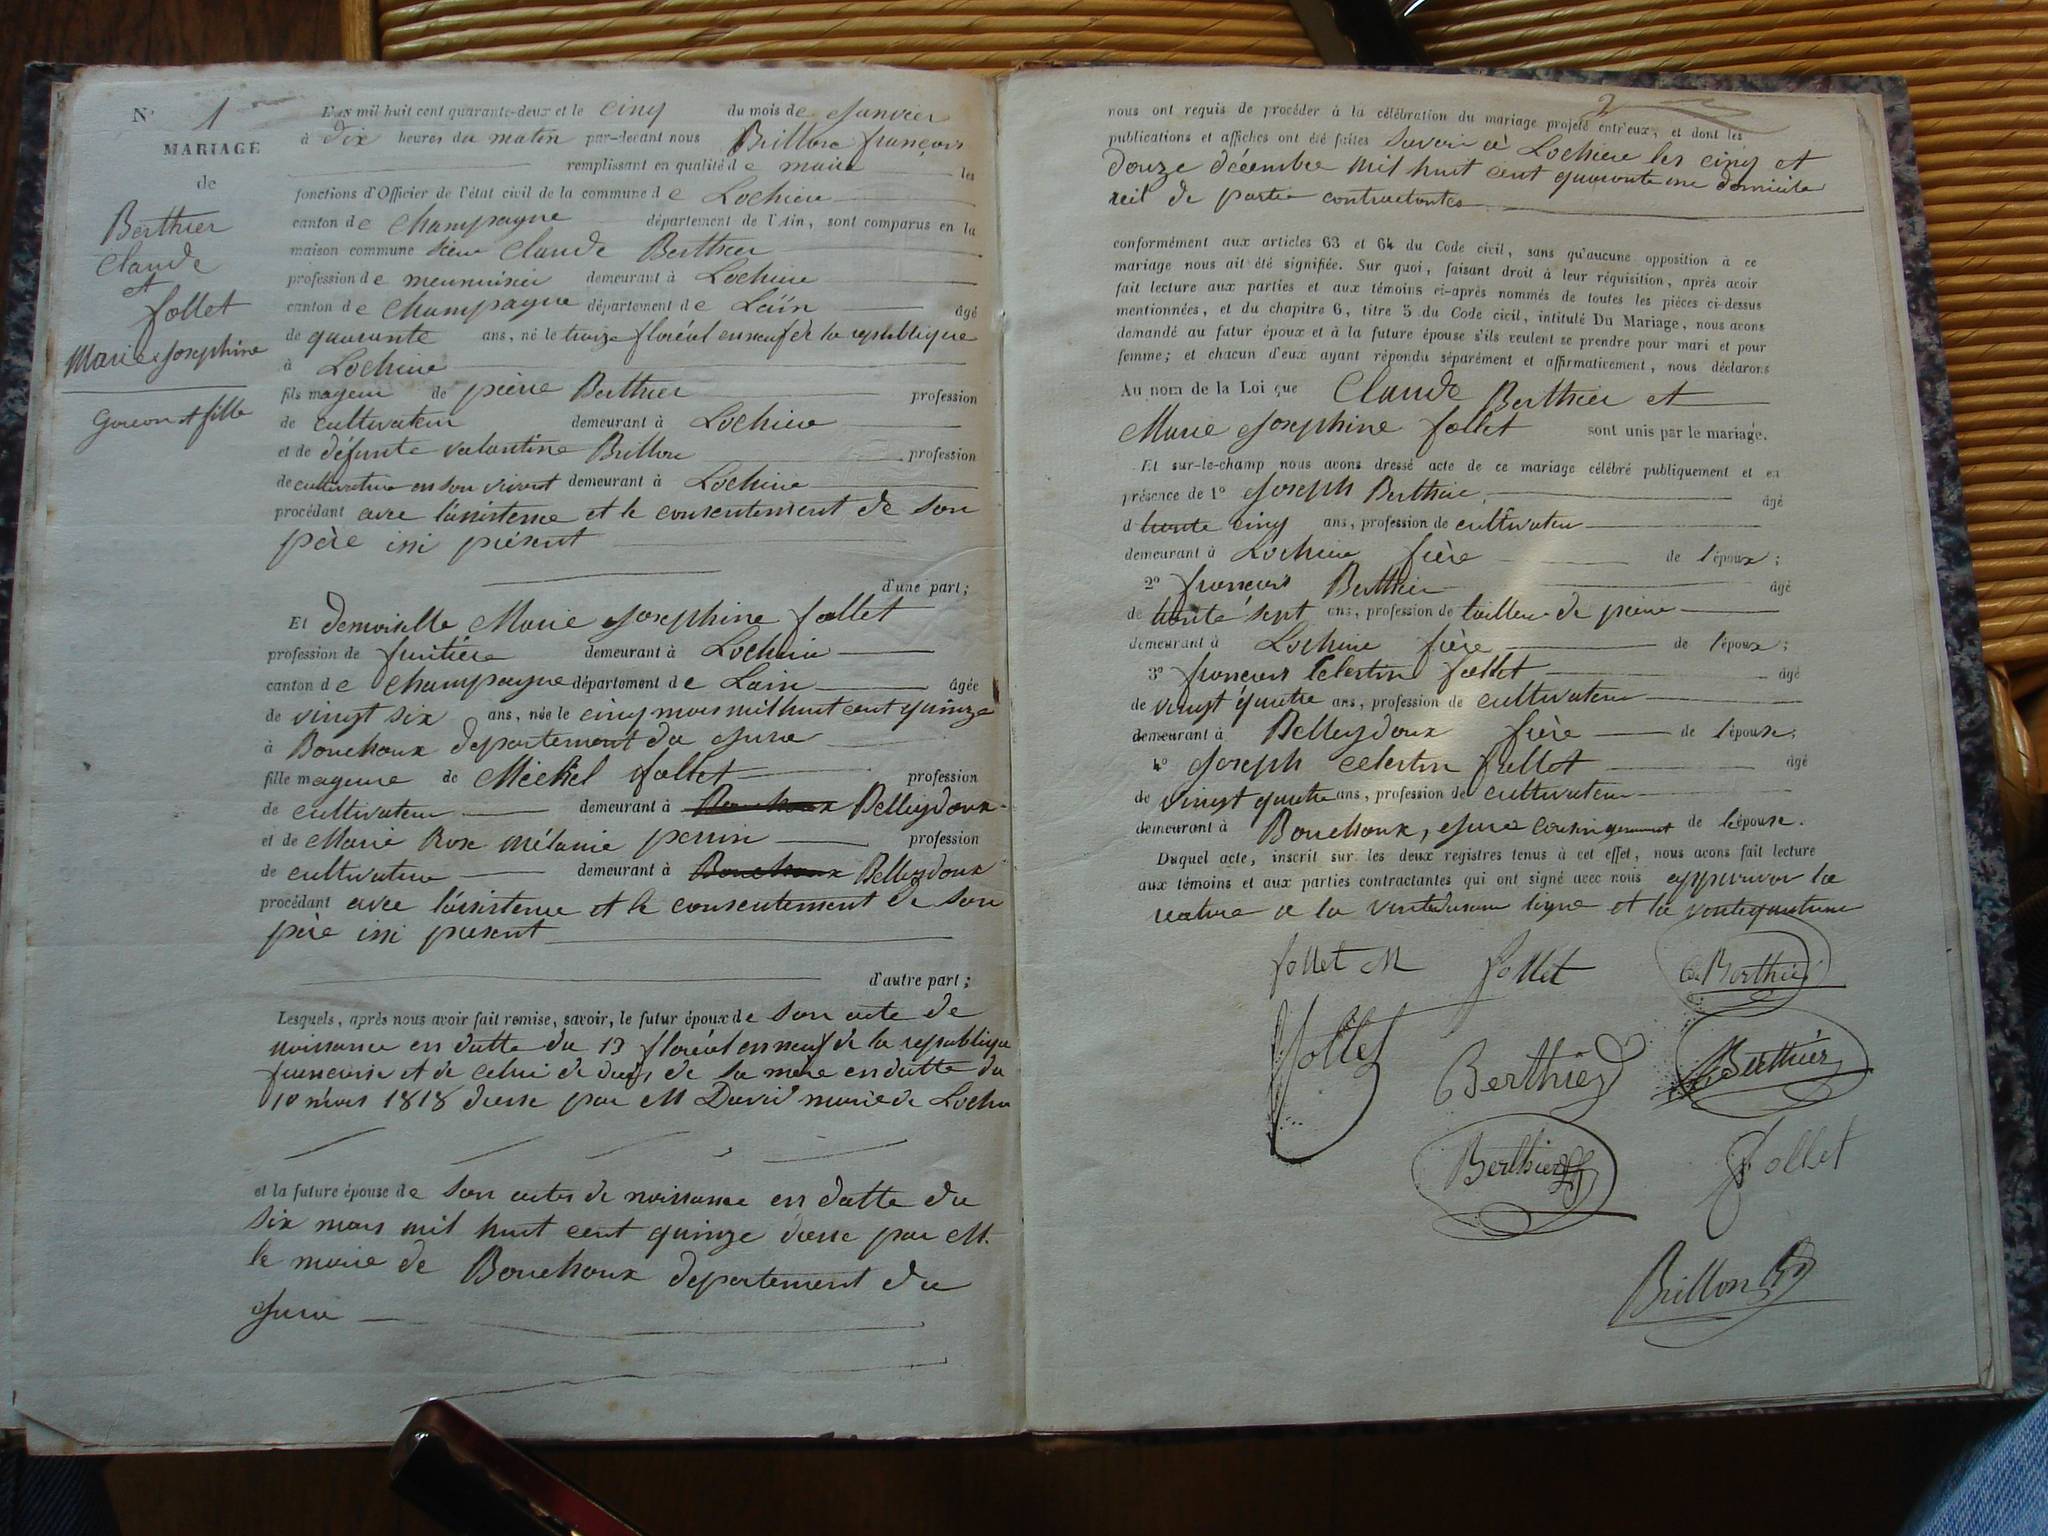 N° 1
MARIAGE
de
Berthier
Claude
et
follet
Marie Josephine
Garcon et fille
L'an mil huit cent quarante-deux et le cinq du mois de Janvier
à dix heures du matin par-devant nous Brillon françois
remplissant en qualité de maire les
fonctions d'Officier de l'état civil de la commune de Lochieu
canton de Champagne département de l'Ain, sont comparus en la
maison commune sieur Claude Berthier
profession de menuisier demeurant à Lochieu
canton de Champagne département de Lain âgé
de quarante ans, né le treize floréal en neuf de la republique
à Lochieu
fils mageur de pierre Berthier profession
de cultivateur demeurant à Lochieu
et de défunte valantine Brillon profession
de cultivatrice en son vivant demeurant à Lochieu
procédant avec l'assistence et le consentement de son
père issi présent
d'une part;
Et demoiselle Marie Josephine follet
profession de demeurant à Lochieu
canton de Champagne département de Lain âgée
de vingt six ans, née le cinq mars mil huit cent quinze
à Bouchoux departement du Jura
fille mageure de Michel follet profession
de cultivateur demeurant à Bouchoux Belleydoux
et de Marie Rose Mélanie perrin profession
de cultivateur demeurant à Bouchoux Belleydoux
procédant avec l'assistence et le consentement de son
père issi présent
d'autre part;
Lesquels, après nous avoir fait remise, savoir, le futur époux de son acte de
naissance en datte du 13 floréal en neuf de la republique
francaise et de celui de de sa mère en datte du
10 mars 1818 dresse par M David maire de Lochieu
et la future épouse de son actes de naissance en datte du
six mars mil huit cent quinze dresse par M.
le maire de Bouchoux departement du
Jura
2
nous ont requis de procéder à la célébration du mariage projeté entr'eux, et dont les
publications et affiches ont été faites savoir à Lochieu les cinq et
douze décembre mil huit cent quarante une domicile
de partie contractantes
conformément aux articles 63 et 64 du Code civil, sans qu'aucune opposition à ce
mariage nous ait été signifiée. Sur quoi, faisant droit à leur réquisition, après avoir
fait lecture aux parties et aux témoins ci-après nommés de toutes les pièces ci-dessus
mentionnées, et du chapitre 6, titre 5 du Code civil, intitulé Du Mariage, nous avons
demandé au futur époux et à la future épouse s'ils veulent se prendre pour mari et pour
femme; et chacun d'eux ayant répondu séparément et affirmativement, nous déclarons
Au nom de la Loi que Claude Berthier et
Marie Josephine follet sont unis par le mariage.
Et sur-le-champ nous avons dressé acte de ce mariage célébré publiquement et en
présence de 1° Joseph Berthier, âgé
d trente cinq ans, profession de cultivateur
demeurant à Lochieu frère de l'époux;
2° francois Berthier âgé
de trente sept ans, profession de tailleur de pierre
demeurant à Lochieu frère de l'époux;
3° francois Celestin follet âgé
de vingt quatre ans, profession de cultivateur
demeurant à Belleydoux frère de l'épouse;
4° Joseph Celestin follet âgé
de vingt quatre ans, profession de cultivateur
demeurant à Bouchoux, Jura cousin germint de l'épouse.
Duquel acte, inscrit sur les deux registres tenus à cet effet, nous avons fait lecture
aux témoins et aux parties contractantes qui ont signé avec nous approuvon la
rature a la ligne et la
follet M follet Berthier
follet Berthier Berthier
Berthier follet
Brillon